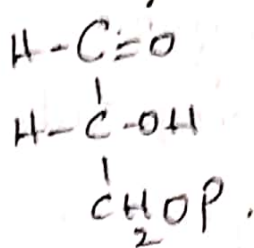 H-C=O
|
H-C-OH
|
CH2OP.